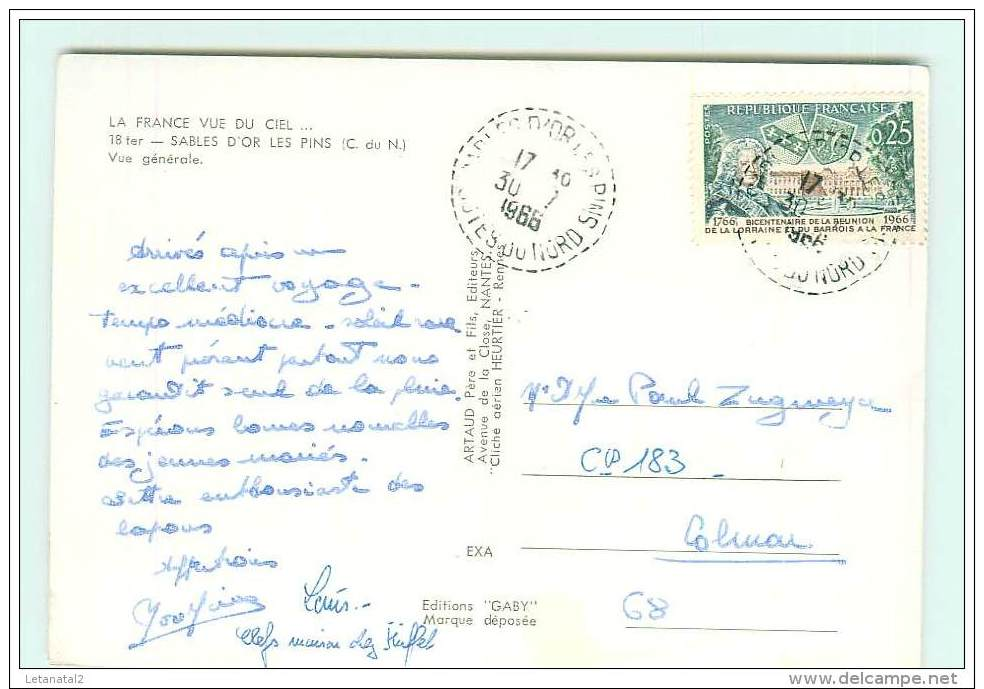 LA FRANCE VUE DU CIEL ...
18 ter — SABLES D'OR LES PINS (C. du N.)
Vue générale.
SABLES D'OR LES PINS
17 30
30 - 7
1966
CÔTES DU NORD
POSTES
REPUBLIQUE FRANÇAISE
0,25
17 30
30 - 7
1966
DU NORD
1766 BICENTENAIRE DE LA REUNION 1966
DE LA LORRAINE ET DU BARROIS A LA FRANCE
Arrivés après un
excellent voyage -
temps médiocre - soleil rare
vent partout nous
garantit seul de la pluie.
Espérons bonnes nouvelles
des jeunes mariés.
enthousiaste des
lapons
Louis.-
clefs maison chez
ARTAUD Père et Fils, Editeurs
Avenue de la Close, NANTES
"Cliché aérien HEURTIER - Rennes
EXA
Editions "GABY"
Marque déposée
Mr Mme Paul
CP 183
Colmar
68
Letanatal2
delcampe.net